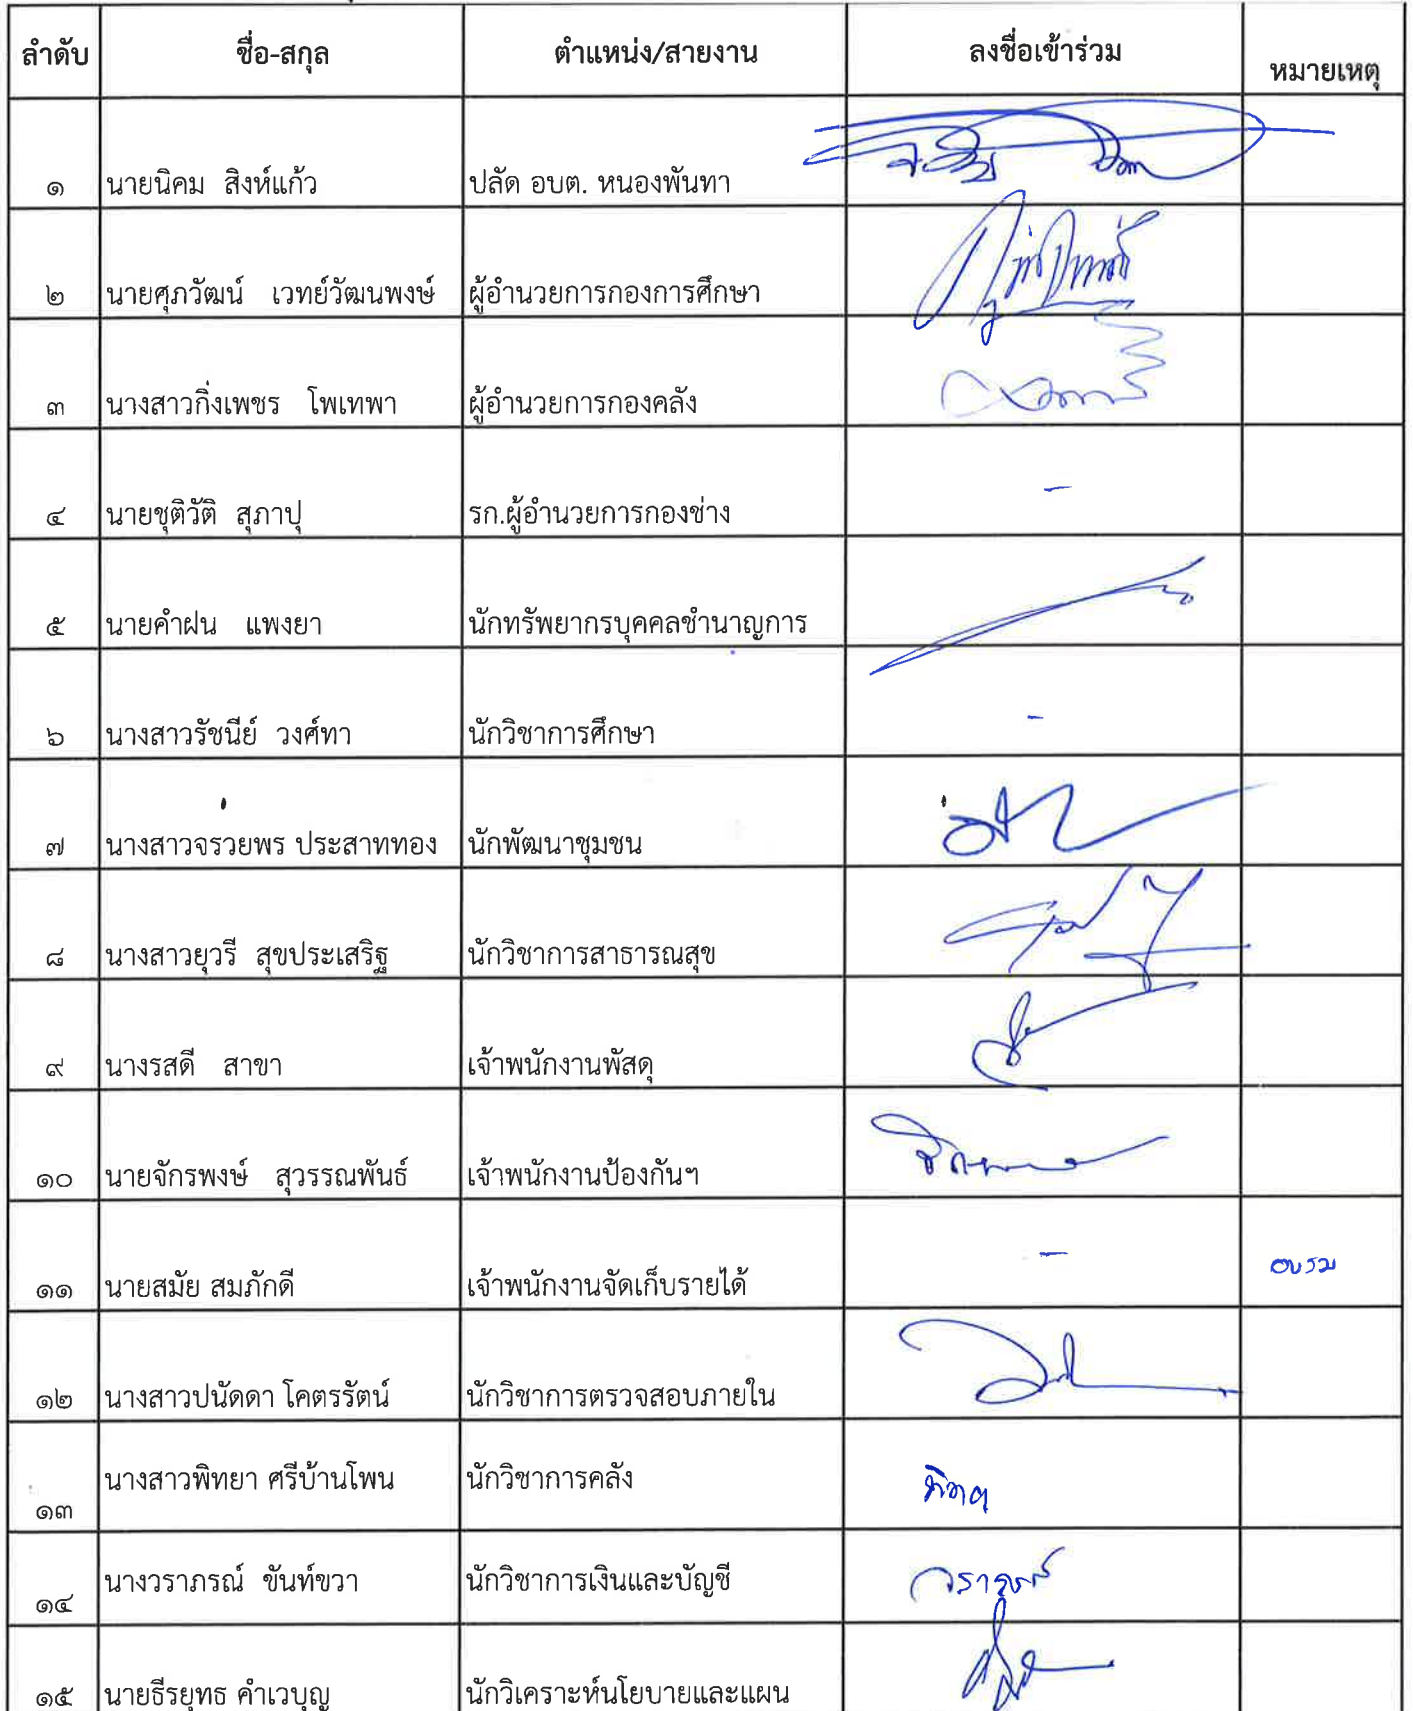 ลำดับ ชื่อ-สกุล ตำแหน่ง/สายงาน ลงชื่อเข้าร่วม หมายเหตุ
๑ นายนิคม สิงห์แก้ว ปลัด อบต. หนองพันทา
๒ นายศุภวัฒน์ เวทย์วัฒนพงษ์ ผู้อำนวยการกองการศึกษา
๓ นางสาวกิ่งเพชร โพเทพา ผู้อำนวยการกองคลัง
๔ นายชุติวัติ สุภาปุ รก.ผู้อำนวยการกองช่าง -
๕ นายคำฝน แพงยา นักทรัพยากรบุคคลชำนาญการ
๖ นางสาวรัชนีย์ วงศ์ทา นักวิชาการศึกษา -
๗ นางสาวจรวยพร ประสาททอง นักพัฒนาชุมชน
๘ นางสาวยุวรี สุขประเสริฐ นักวิชาการสาธารณสุข
๙ นางรสดี สาขา เจ้าพนักงานพัสดุ
๑๐ นายจักรพงษ์ สุวรรณพันธ์ เจ้าพนักงานป้องกันฯ
๑๑ นายสมัย สมภักดี เจ้าพนักงานจัดเก็บรายได้ - อบรม
๑๒ นางสาวปนัดดา โคตรรัตน์ นักวิชาการตรวจสอบภายใน
๑๓ นางสาวพิทยา ศรีบ้านโพน นักวิชาการคลัง พิทยา
๑๔ นางวราภรณ์ ขันท์ขวา นักวิชาการเงินและบัญชี วราภรณ์
๑๕ นายธีรยุทธ คำเวบุญ นักวิเคราะห์นโยบายและแผน